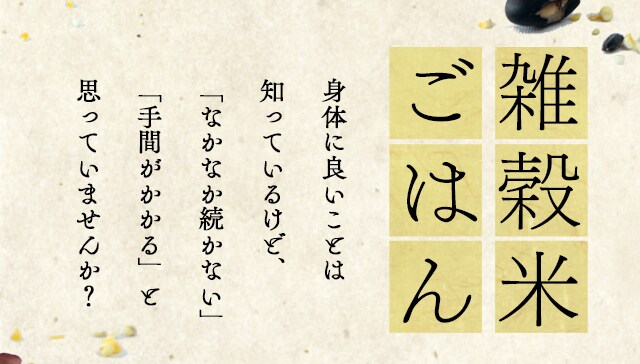 雑穀米
ごはん
身体に良いことは
知っているけど、
「なかなか続かない」
「手間がかかる」と
思っていませんか?